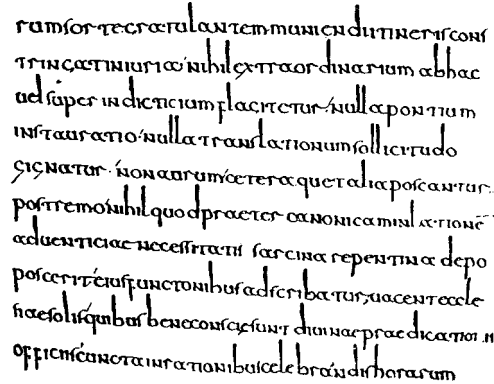 rumsortegratulantemmuniendiitineriscons
tringatiniuria nihilextraordinarium abhac
uelsuperindicticiumflagitetur nullapontium
instauratio nullatranslationumsollicitudo
gignatur nonaurum ceteraquetaliaposcantur
postremo nihilquodpraeter canonicaminlatione
aduenticiae necessitatis sarcina repentina depo
poscerit eiusfunctonibusadscribatur, uacentecle
siaesolisquibusbeneconsciesunt diuinaepraedication
officiis cunctainrationibuscelebrandishorarum